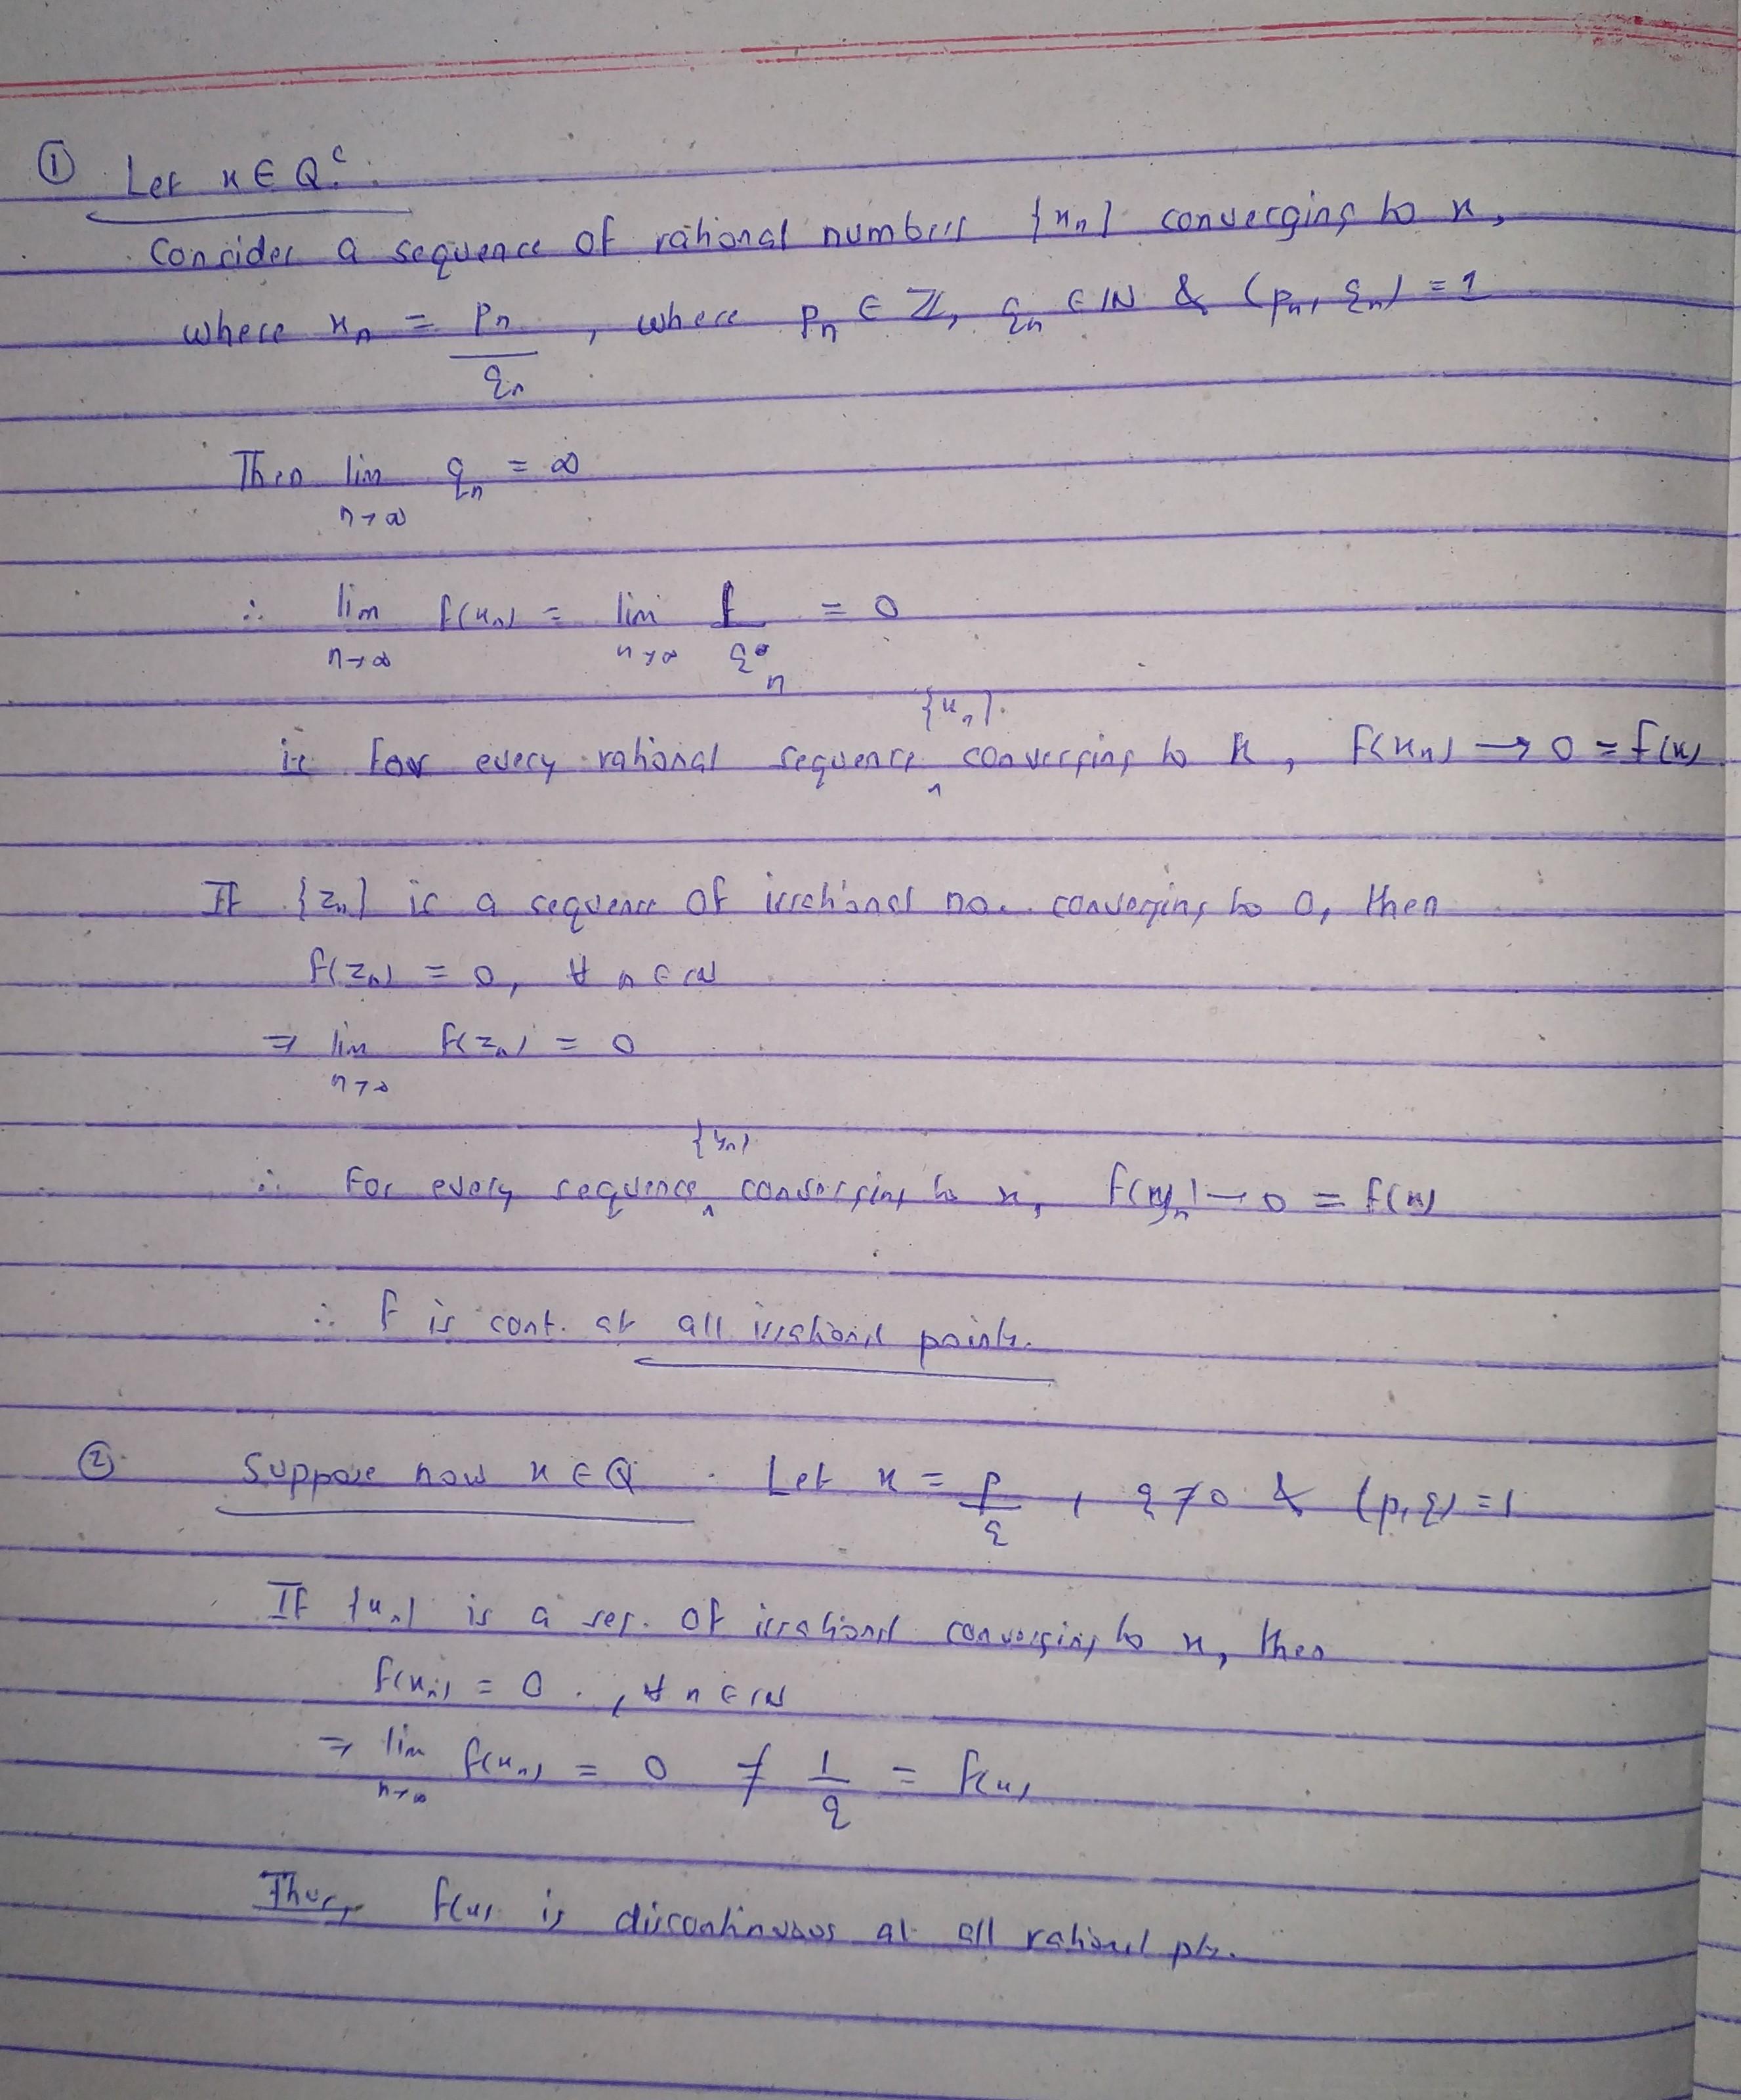 ① Let x ∈ Qᶜ.
Consider a sequence of rational numbers {xₙ} converging to x,
where xₙ = pₙ/qₙ , where pₙ ∈ ℤ, qₙ ∈ ℕ & (pₙ, qₙ) = 1
Then lim n→∞ qₙ = ∞
∴ lim n→∞ f(xₙ) = lim n→∞ 1/qₙ = 0
ie for every rational sequence {xₙ} converging to x, f(xₙ) → 0 = f(x)
If {zₙ} is a sequence of irrational no. converging to 0, then
f(zₙ) = 0, ∀ n ∈ ℕ
⇒ lim n→∞ f(zₙ) = 0
∴ For every sequence {yₙ} converging to x, f(yₙ) → 0 = f(x)
∴ f is cont. at all irrational points.
② Suppose now x ∈ Q. Let x = p/q , q ≠ 0 & (p, q) = 1
If {xₙ} is a seq. of irrational converging to x, then
f(xₙ) = 0 , ∀ n ∈ ℕ
⇒ lim n→∞ f(xₙ) = 0 ≠ 1/q = f(x)
Thus, f(x) is discontinuous at all rational pts.